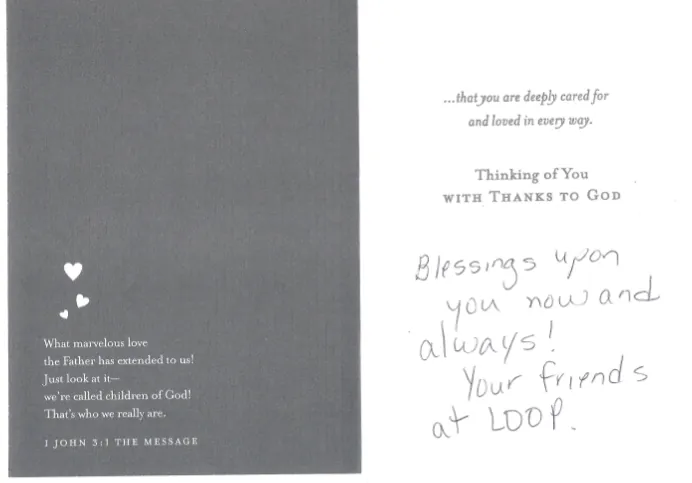 What marvelous love
the Father has extended to us!
Just look at it—
we're called children of God!
That's who we really are.
1 JOHN 3:1 THE MESSAGE
...that you are deeply cared for
and loved in every way.
Thinking of You
WITH THANKS TO GOD
Blessings upon
you now and
always!
Your friends
at LOOP.